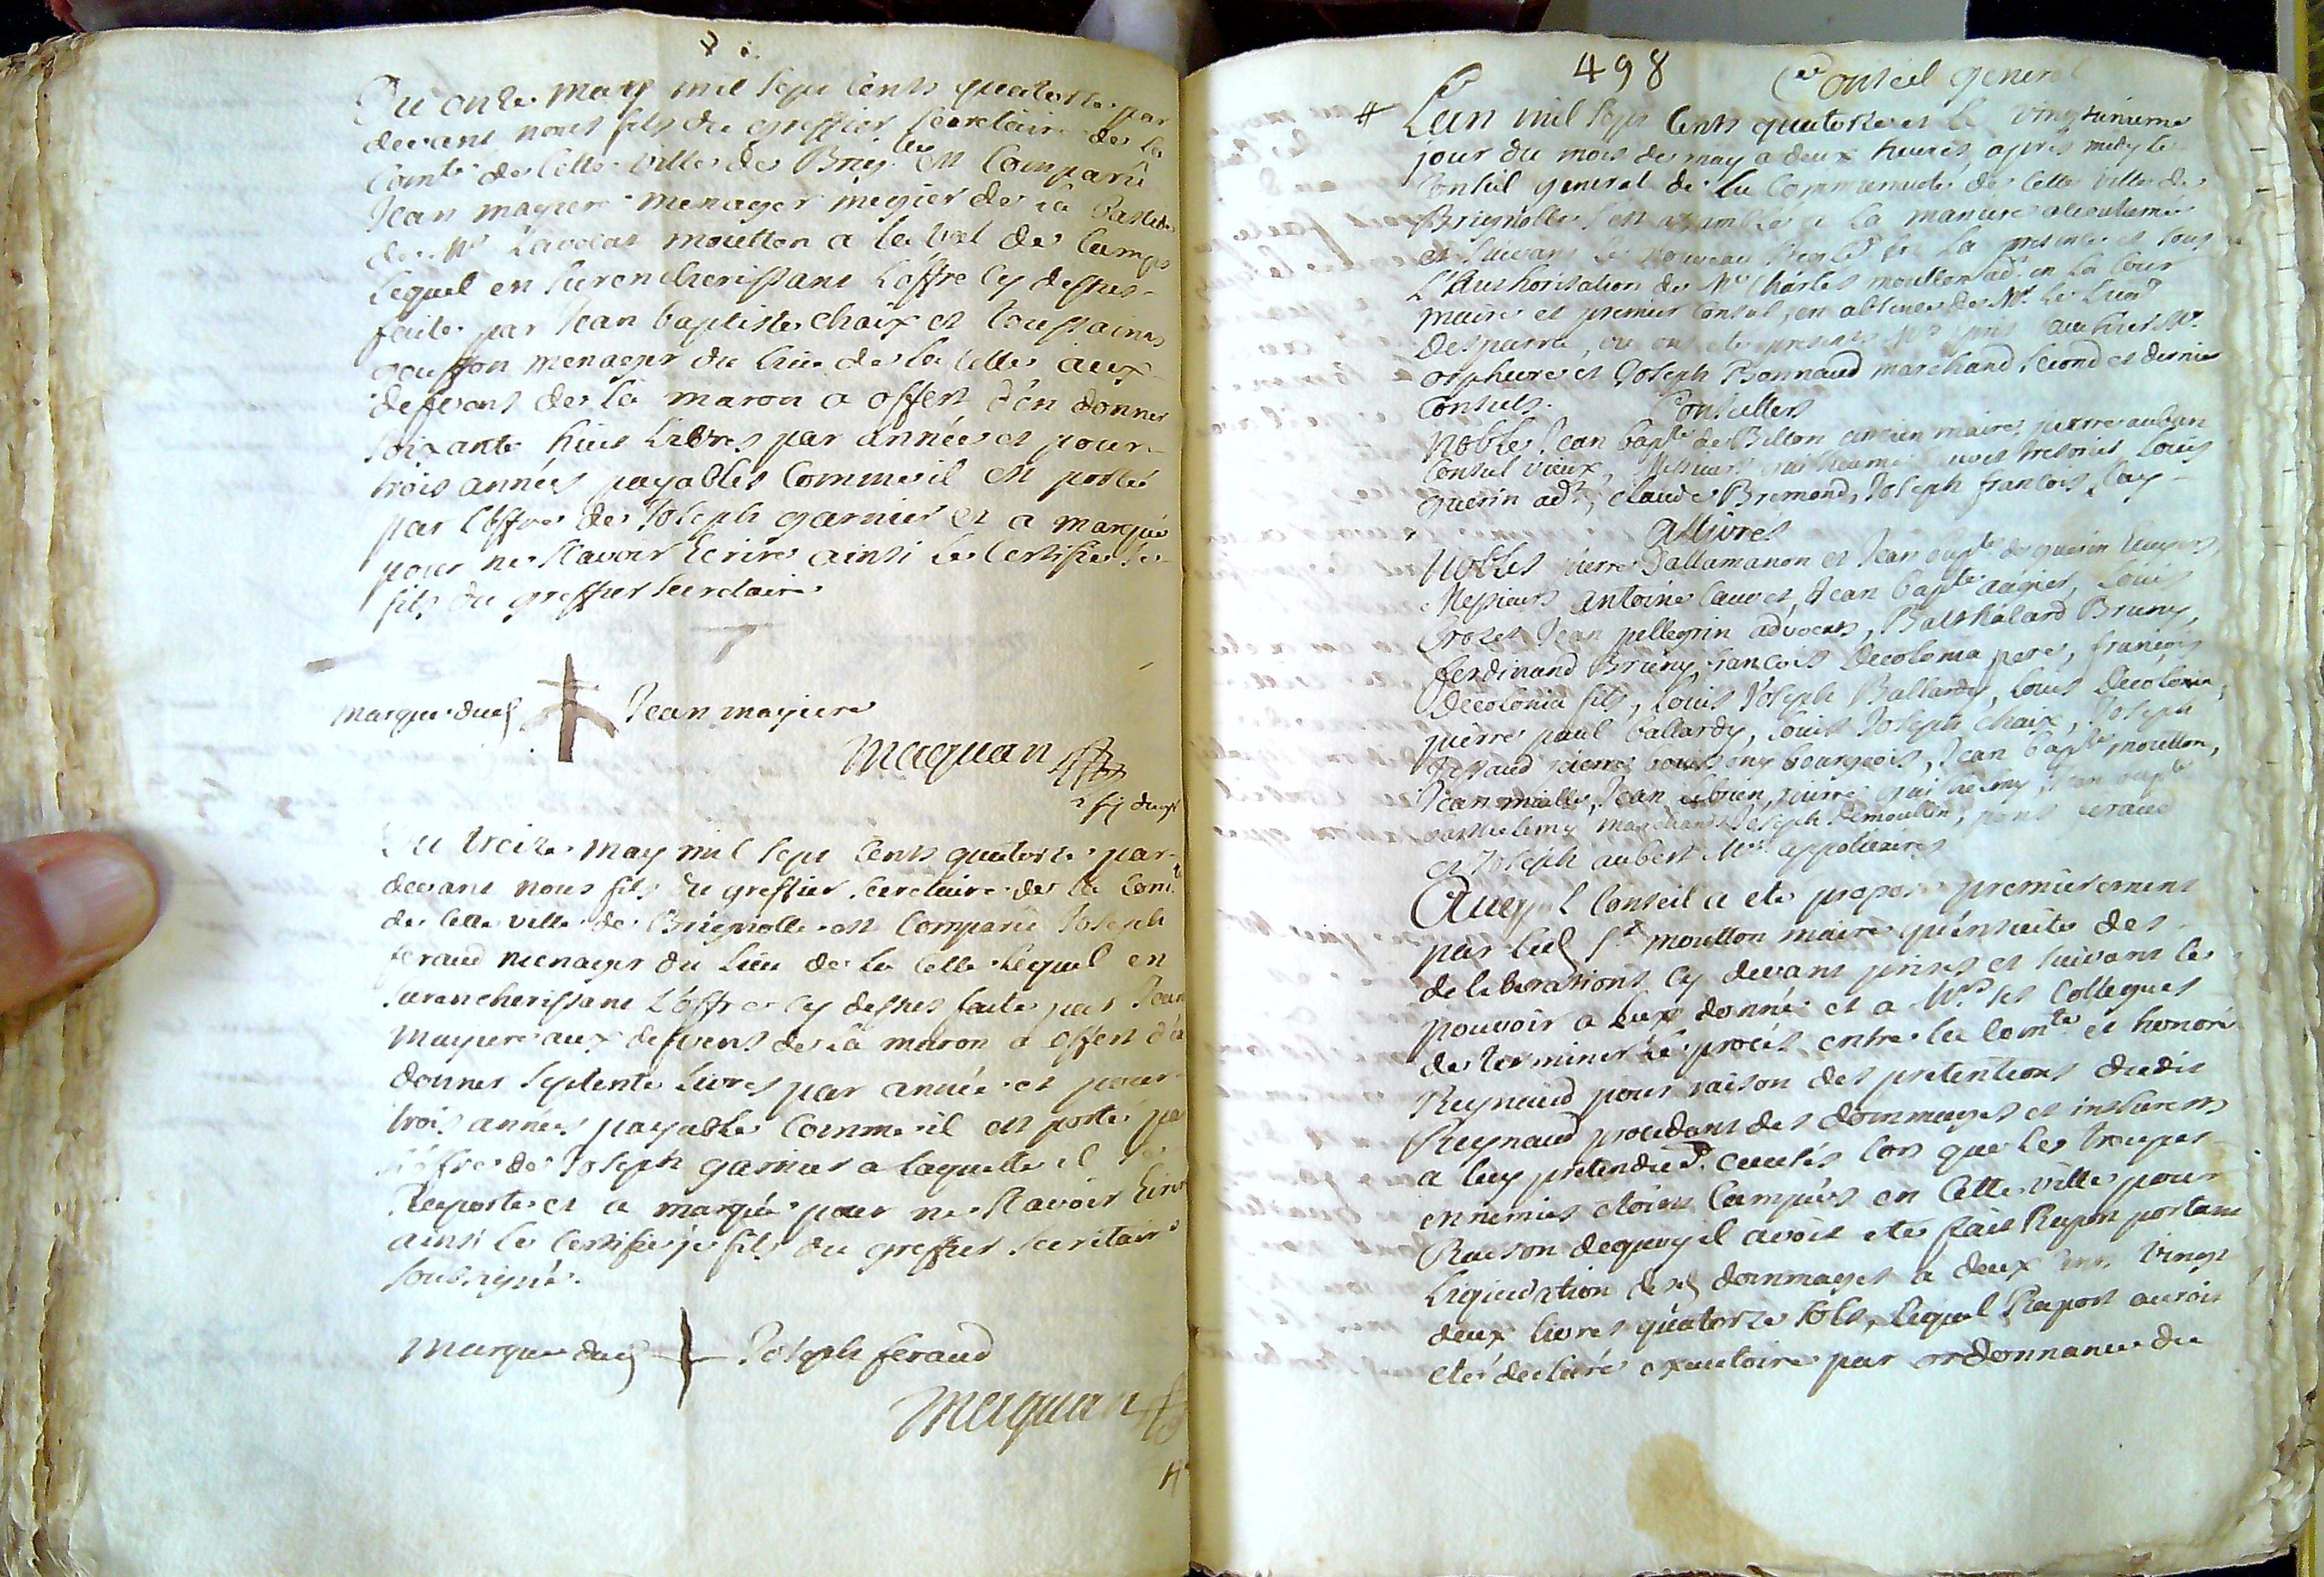 Du onze may mil sept cents quatorze par
devant nous fils du greffier secretaire de la
Com.te de cette ville de Brig.lles est Comparû
Jean mayere menager megier de la bastide
de Mr Lavocat moutton a la val de camps
lequel en surencherissant L'offre cy dessus
faite par Jean baptiste chaix et toussaint
gouffon menager du lieu de la celle aux
deffens de la maron a offert d'en donner
soixante huit Livres par année et pour
trois années payables Comme il est porté
par l'offre de Joseph garnier et a marqué
pour ne sçavoir Ecrire ainsi le certifie le
fils du greffier secretaire
marque dud Jean mayere
Maquan
fis du gr
Du treize may mil sept cents quatorze par
devant nous fils du greffier secretaire de la Com.te
de cette ville de Brignolle est Comparu Joseph
feraud menager du Lieu de la Celle Lequel en
surencherissant L'offre cy dessus faite par Jean
mayere aux deffens de la maron a offert d'en
donner septente livres par année et pour
trois années payable Comme il est porté par
L'offre de Joseph garnier a laquelle il se
Raporte et a marqué pour ne sçavoir Ecrire
ainsi le certifie je fils du greffier secretaire
soubsigné.
Marque dud Joseph feraud
Maquan
498 Conseil general
L'an mil sept cents quatorze et le vingtunieme
jour du mois de may a deux heures apres midy le
Conseil general de la Communauté de cette ville de
Brignolle s'est assemblé a la maniere accoutumée
et suivant le nouveau Regl.t la presence et sous
L'Authorisation de Mr Charles moutton ad.t en la Cour
maire et premier Consul, en absence de Mr Le Lieu.t
Desparra, ou ont ete presents
orphevre et Joseph Bonnaud marchand second et dernier
Consuls. Conseillers
Noble Jean bap.te de Bellon ancien maire pierre auban
Consul vieux, Messieurs tresorier Louis
guerin ad.t, Claude Bremond, Joseph françois Clay
Adjoints
Nobles pierre Dallamanon et Jean bap.te de guerin
Messieurs Antoine Cauvet, Jean bap.te augier, Louis
Crozet Jean pellegrin advocats, Balthasard Bruny,
ferdinand Bruny, françois Decolonia pere, françois
Decolonia fils, Louis Joseph Ballardy, Louis Decolonia,
pierre paul ballardy, Louis Joseph Chaix, Joseph
pierre bourgeois, Jean bap.te moutton,
Jean Jean pierre Jean bap.te
barthelemy marchands Joseph Demoutton, feraud
et Joseph aubert Mres appoticaires
Auquel Conseil a ete proposé premierement
par led S.r moutton maire qu'ensuite des
deliberations cy devant prises et suivant le
pouvoir a Lux donné et a Mrs ses Collegues
de terminer le procès entre la Com.te et honoré
Reynaud pour raison des pretentions dudit
Reynaud procedant des dommages et interests
a luy pretendus causés lors que les troupes
ennemies etoient campées en cette ville pour
Raison dequoy il avoit ete fait Raport portant
Liquidation desd dommages a deux cens vingt
deux livres quatorze sols, Lequel Raport auroit
eté déclaré executoire par ordonnance du